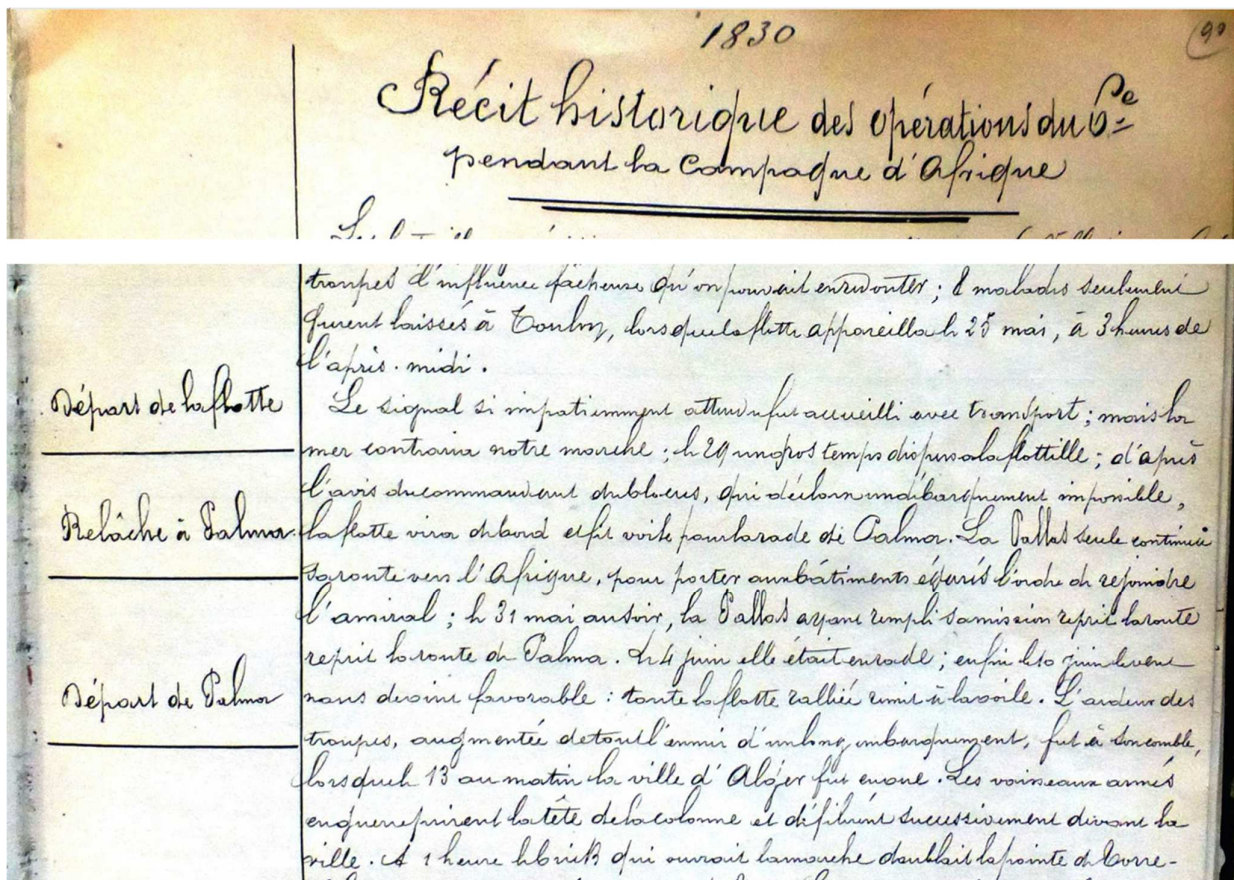 1830
90
Récit historique des opérations du 6e
pendant la Campagne d'Afrique
troupes d'influence fâcheuse qu'on pouvait redouter ; 8 malades seulement
furent laissés à Toulon, lorsque la flotte appareilla le 25 mai, à 3 heures de
l'après-midi.
Départ de la flotte
Le signal si impatiemment attendu fut accueilli avec transport ; mais la
mer contraria notre marche ; le 29 un gros temps dispersa la flottille ; d'après
l'avis du commandant du blocus, qui déclara un débarquement impossible,
Relâche à Palma
la flotte vira de bord et fit voile pour la rade de Palma. La Pallas seule continua
sa route vers l'Afrique, pour porter aux bâtiments égarés l'ordre de rejoindre
l'amiral ; le 31 mai au soir, la Pallas ayant rempli sa mission reprit la route
reprit la route de Palma. Le 4 juin elle était en rade ; enfin le 10 juin le vent
Départ de Palma
nous devint favorable : toute la flotte ralliée remit à la voile. L'ardeur des
troupes, augmentée de tout l'ennui d'un long embarquement, fut à son comble,
lorsque le 13 au matin la ville d'Alger fut en vue. Les vaisseaux armés
en guerre prirent la tête de la colonne et défilèrent successivement devant la
ville. A 1 heure le brick qui ouvrait la marche doublait la pointe de Torre-